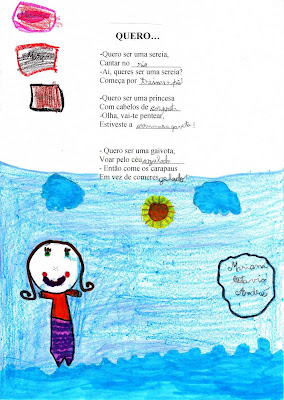 QUERO...
-Quero ser uma sereia,
Cantar no rio
-Ai, queres ser uma sereia?
Começa por
-Quero ser uma princesa
Com cabelos de
-Olha, vai-te pentear,
Estiveste a
- Quero ser uma gaivota,
Voar pelo céu
- Então come os carapaus
Em vez de comeres
Mariana
Octavio
André